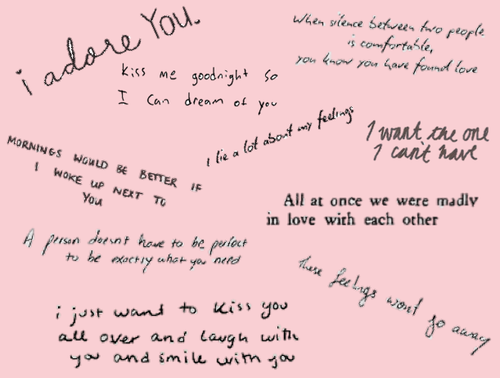 i adore You.
When silence between two people
is comfortable,
you know you have found love
Kiss me goodnight so
I Can dream of you
I lie a lot about my feelings
I want the one
I can't have
MORNINGS WOULD BE BETTER IF
I WOKE UP NEXT TO
YOU
All at once we were madly
in love with each other
A person doesn't have to be perfect
to be exactly what you need
these feelings wont go away
i just want to Kiss you
all over and laugh with
you and smile with you